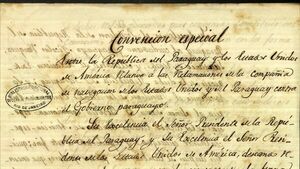 Convencion especial
Entre la Republica del Paraguay y los Estados Unidos
de América relativa á las reclamaciones de la compañia
de navegacion de los Estados Unidos y el Paraguay contra
el Gobierno paraguayo.
Su Excelencia el Señor Presidente de la Repu
blica del Paraguay, y Su Excelencia el Señor Presi
dente de los Estados Unidos de América, deseando
RIO DE JANEIRO